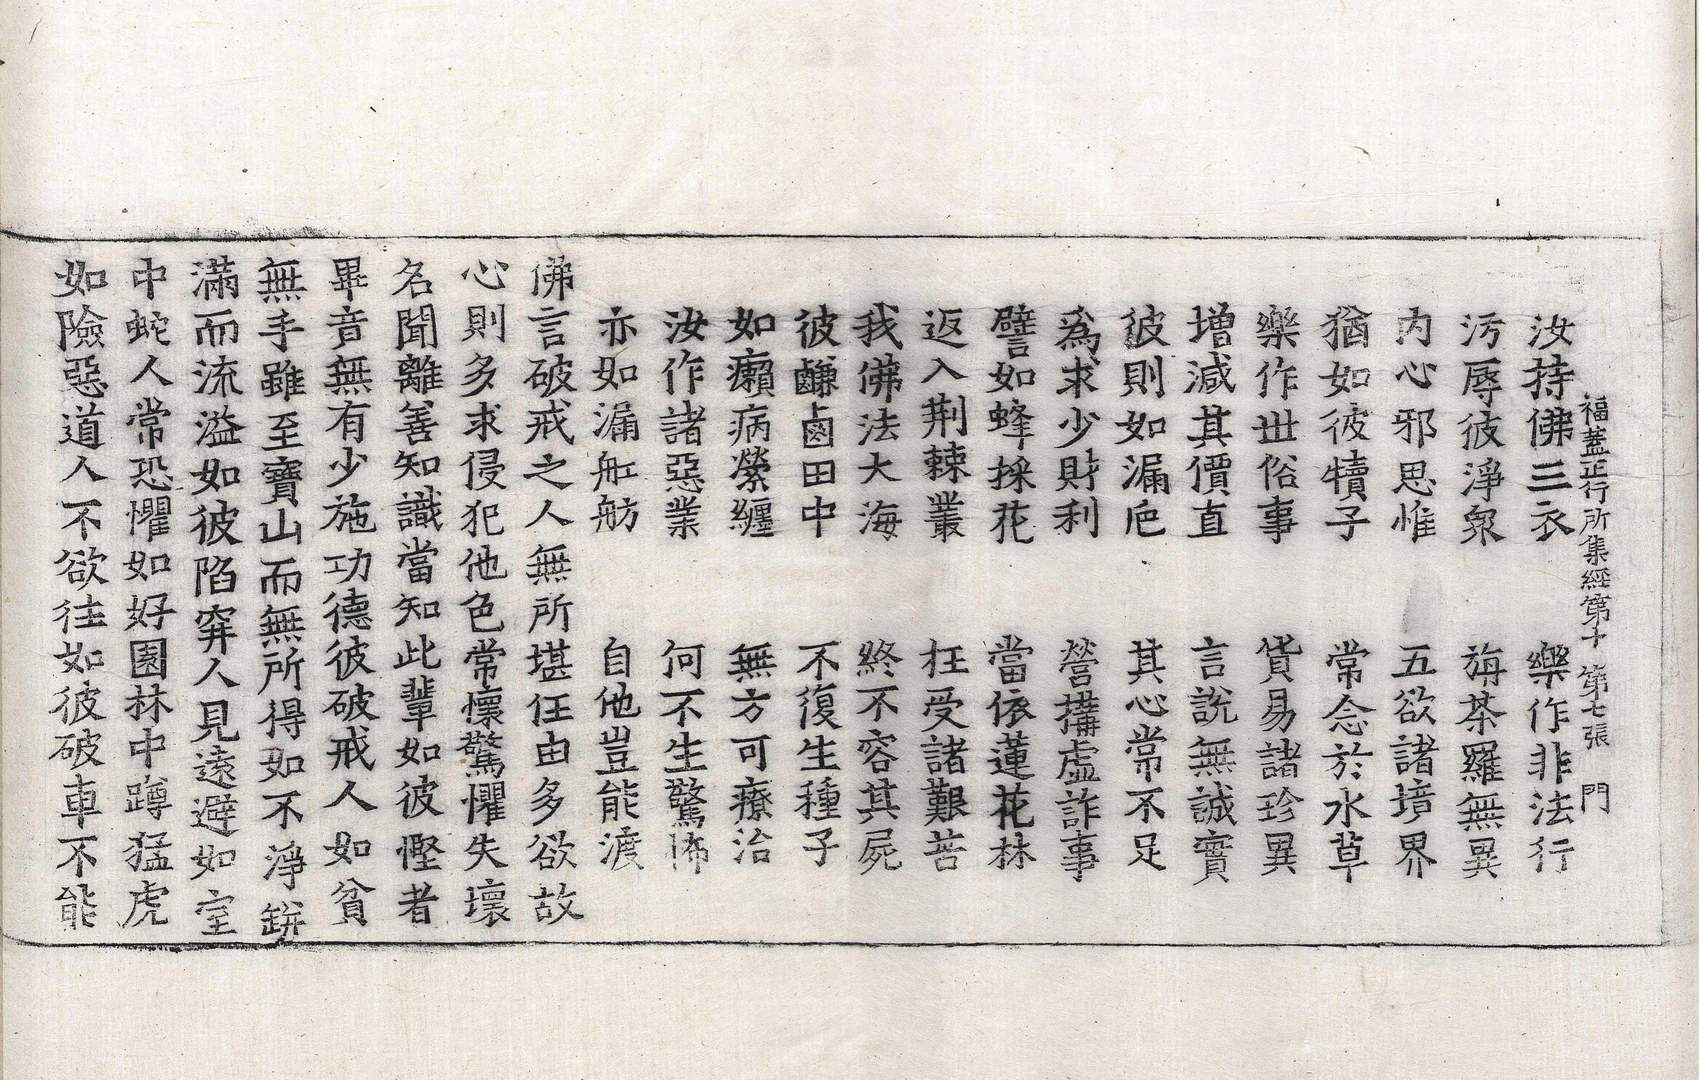 福蓋正行所集經第十 第七張 門
汝持佛三衣 樂作非法行
污辱彼淨衆 旃荼羅無異
內心邪思惟 五欲諸境界
猶如彼犢子 常念於水草
樂作世俗事 貨易諸珍異
增減其價直 言說無誠實
彼則如漏卮 其心常不足
爲求少財利 營搆虛詐事
譬如蜂採花 當依蓮花林
返入荆棘叢 枉受諸艱苦
我佛法大海 終不容其屍
彼鹻鹵田中 不復生種子
如癩病縈纏 無方可療治
汝作諸惡業 何不生驚怖
亦如漏舡舫 自他豈能渡
佛言破戒之人無所堪任由多欲故
心則多求侵犯他色常懷驚懼失壞
名聞離善知識當知此輩如彼慳者
畢音無有少施功德彼破戒人如貧
無手雖至寶山而無所得如不淨缾
滿而流溢如彼陷穽人見遠避如室
中蛇人常恐懼如好園林中蹲猛虎
如險惡道人不欲往如彼破車不能